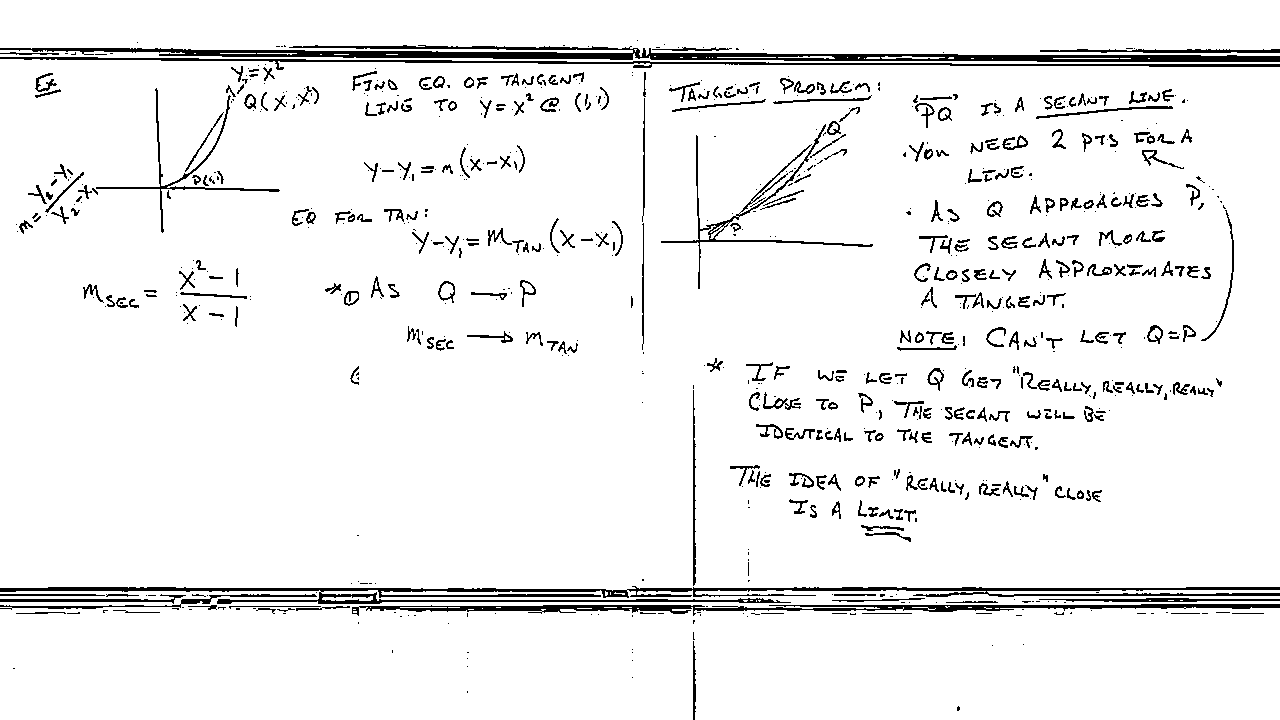 Ex
y=x²
Q(x,x²)
P(1,1)
1
m = y₂-y₁ / x₂-x₁
m_SEC = x²-1 / x-1
FIND EQ. OF TANGENT
LINE TO y=x² @ (1,1)
y-y₁=m(x-x₁)
EQ FOR TAN:
y-y₁=m_TAN(x-x₁)
* ① AS Q → P
m_SEC → m_TAN
TANGENT PROBLEM:
Q
P
PQ IS A SECANT LINE.
· YOU NEED 2 PTS FOR A
LINE.
· AS Q APPROACHES P,
THE SECANT MORE
CLOSELY APPROXIMATES
A TANGENT.
NOTE: CAN'T LET Q=P
* IF WE LET Q GET "REALLY, REALLY, REALLY"
CLOSE TO P, THE SECANT WILL BE
IDENTICAL TO THE TANGENT.
THE IDEA OF "REALLY, REALLY" CLOSE
IS A LIMIT.